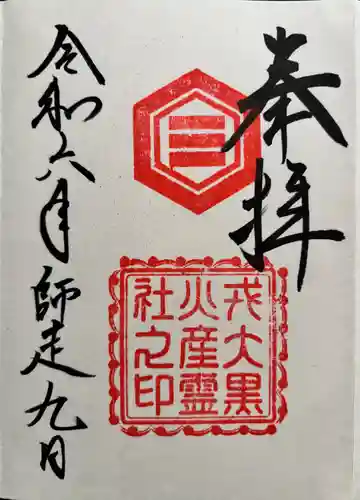 奉拝
戎大黒
火産霊
社之印
令和六年
師走九日